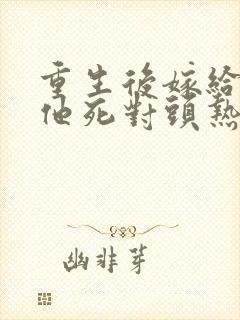 重生後嫁給
他死對頭熱
幽非芽